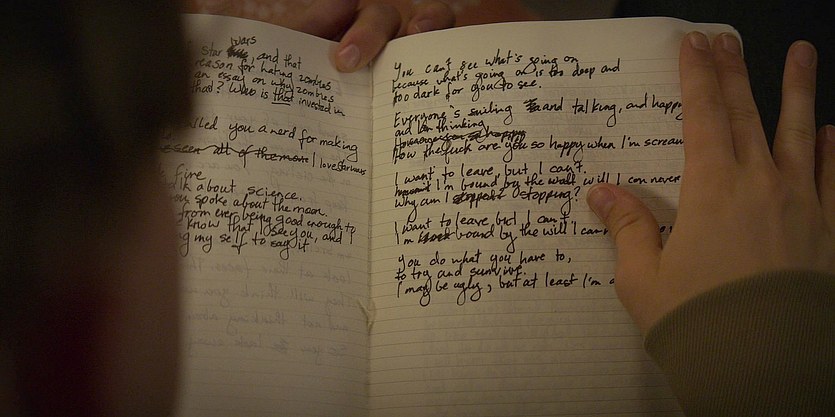 wars
Star , and that
reason for hating zombies
an essay on why zombies
that? Who is that invested in
called you a nerd for making
seen all of them I love Star Wars
Fire
about science.
you spoke about the moon.
from ever being good enough to
know that I see you, and I
ng my self to say it
You can't see what's going on
because what's going on is too deep and
too dark for you to see.
Everyone's smiling and talking, and happy
and I'm thinking
how the fuck are you so happy when I'm screa
I want to leave, but I can't.
I'm bound by the wall, will I can never
why am I stopped? stopping?
I want to leave but I can't
I'm bound by the will I can
You do what you have to,
to try and survive.
I may be ugly, but at least I'm a